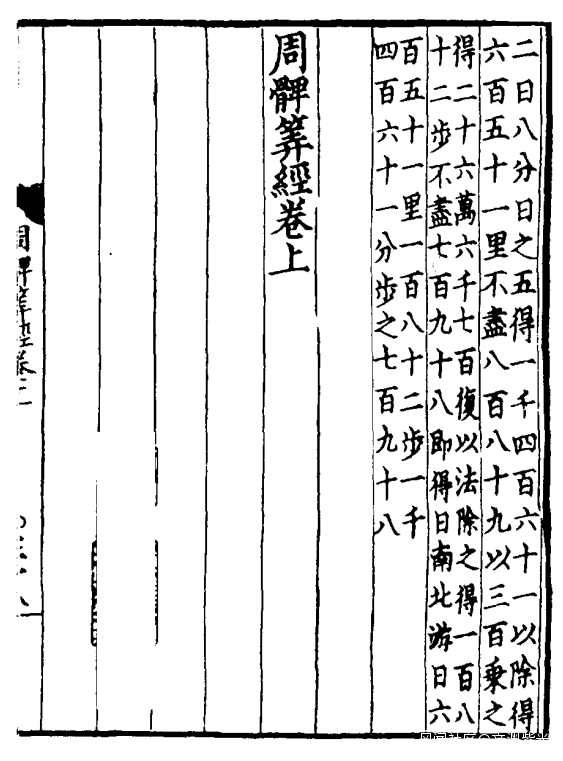 二日八分日之五得一千四百六十一以除得
六百五十一里不盡八百八十九以三百乗之
得二十六萬六千七百復以法除之得一百八
十二步不盡七百九十八即得日南北游日六
百五十一里一百八十二步一千
四百六十一分步之七百九十八
周髀筭經卷上